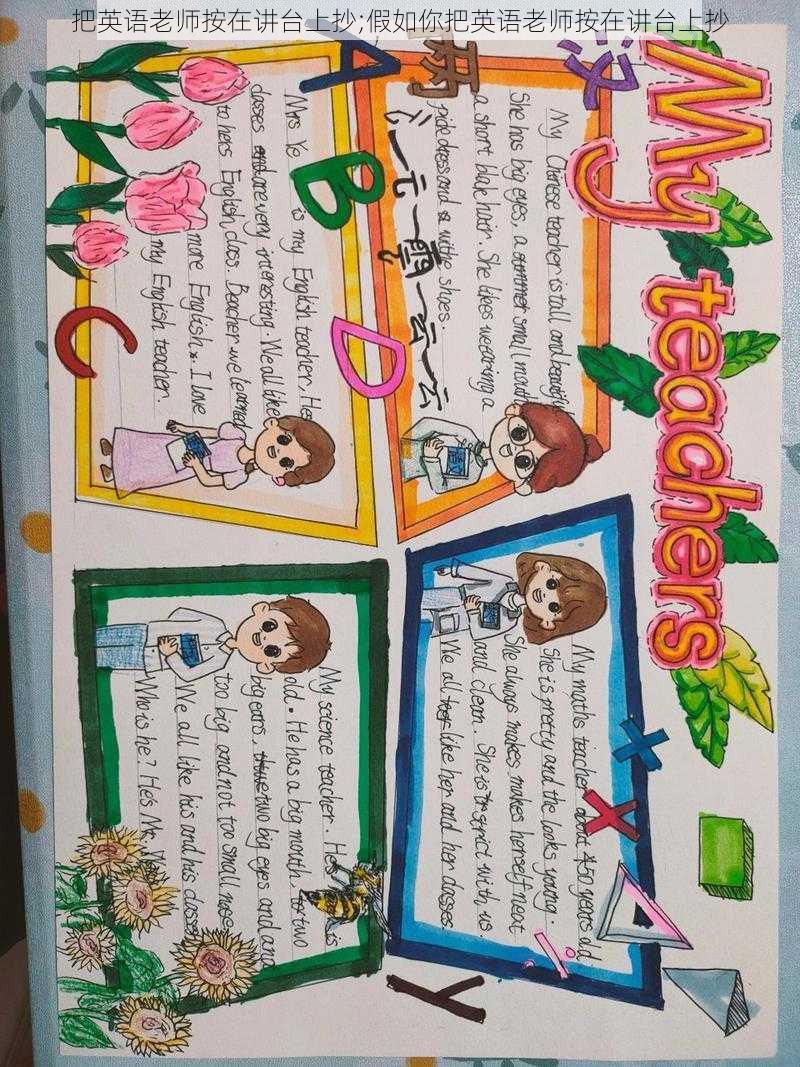 把英语老师按在讲台上抄;假如你把英语老师按在讲台上抄
My teachers
汉
雨
My Chinese teacher is tall and beautiful
She has big eyes, a small mouth
a short blak hair. She likes wearing a
dress and a withe shoes.
一元一雲一云一云
My maths teacher about 45 years old
She is pretty and the looks young.
She always makes makes herself neat
and clean. She is strict with us
We all like her and her classes.
x
x
÷
y
A
B
C
D
Mrs Ye is my English teacher. Her
classes are very interesting. We all like
to hers English class. Beacher we learned
more English. I love
my English teacher.
My science teacher. He is
old. He has a big mouth, two
big ears, two big eyes and and
too big and not too small nose
We all like his and his classes
Who is he? He's Mr.